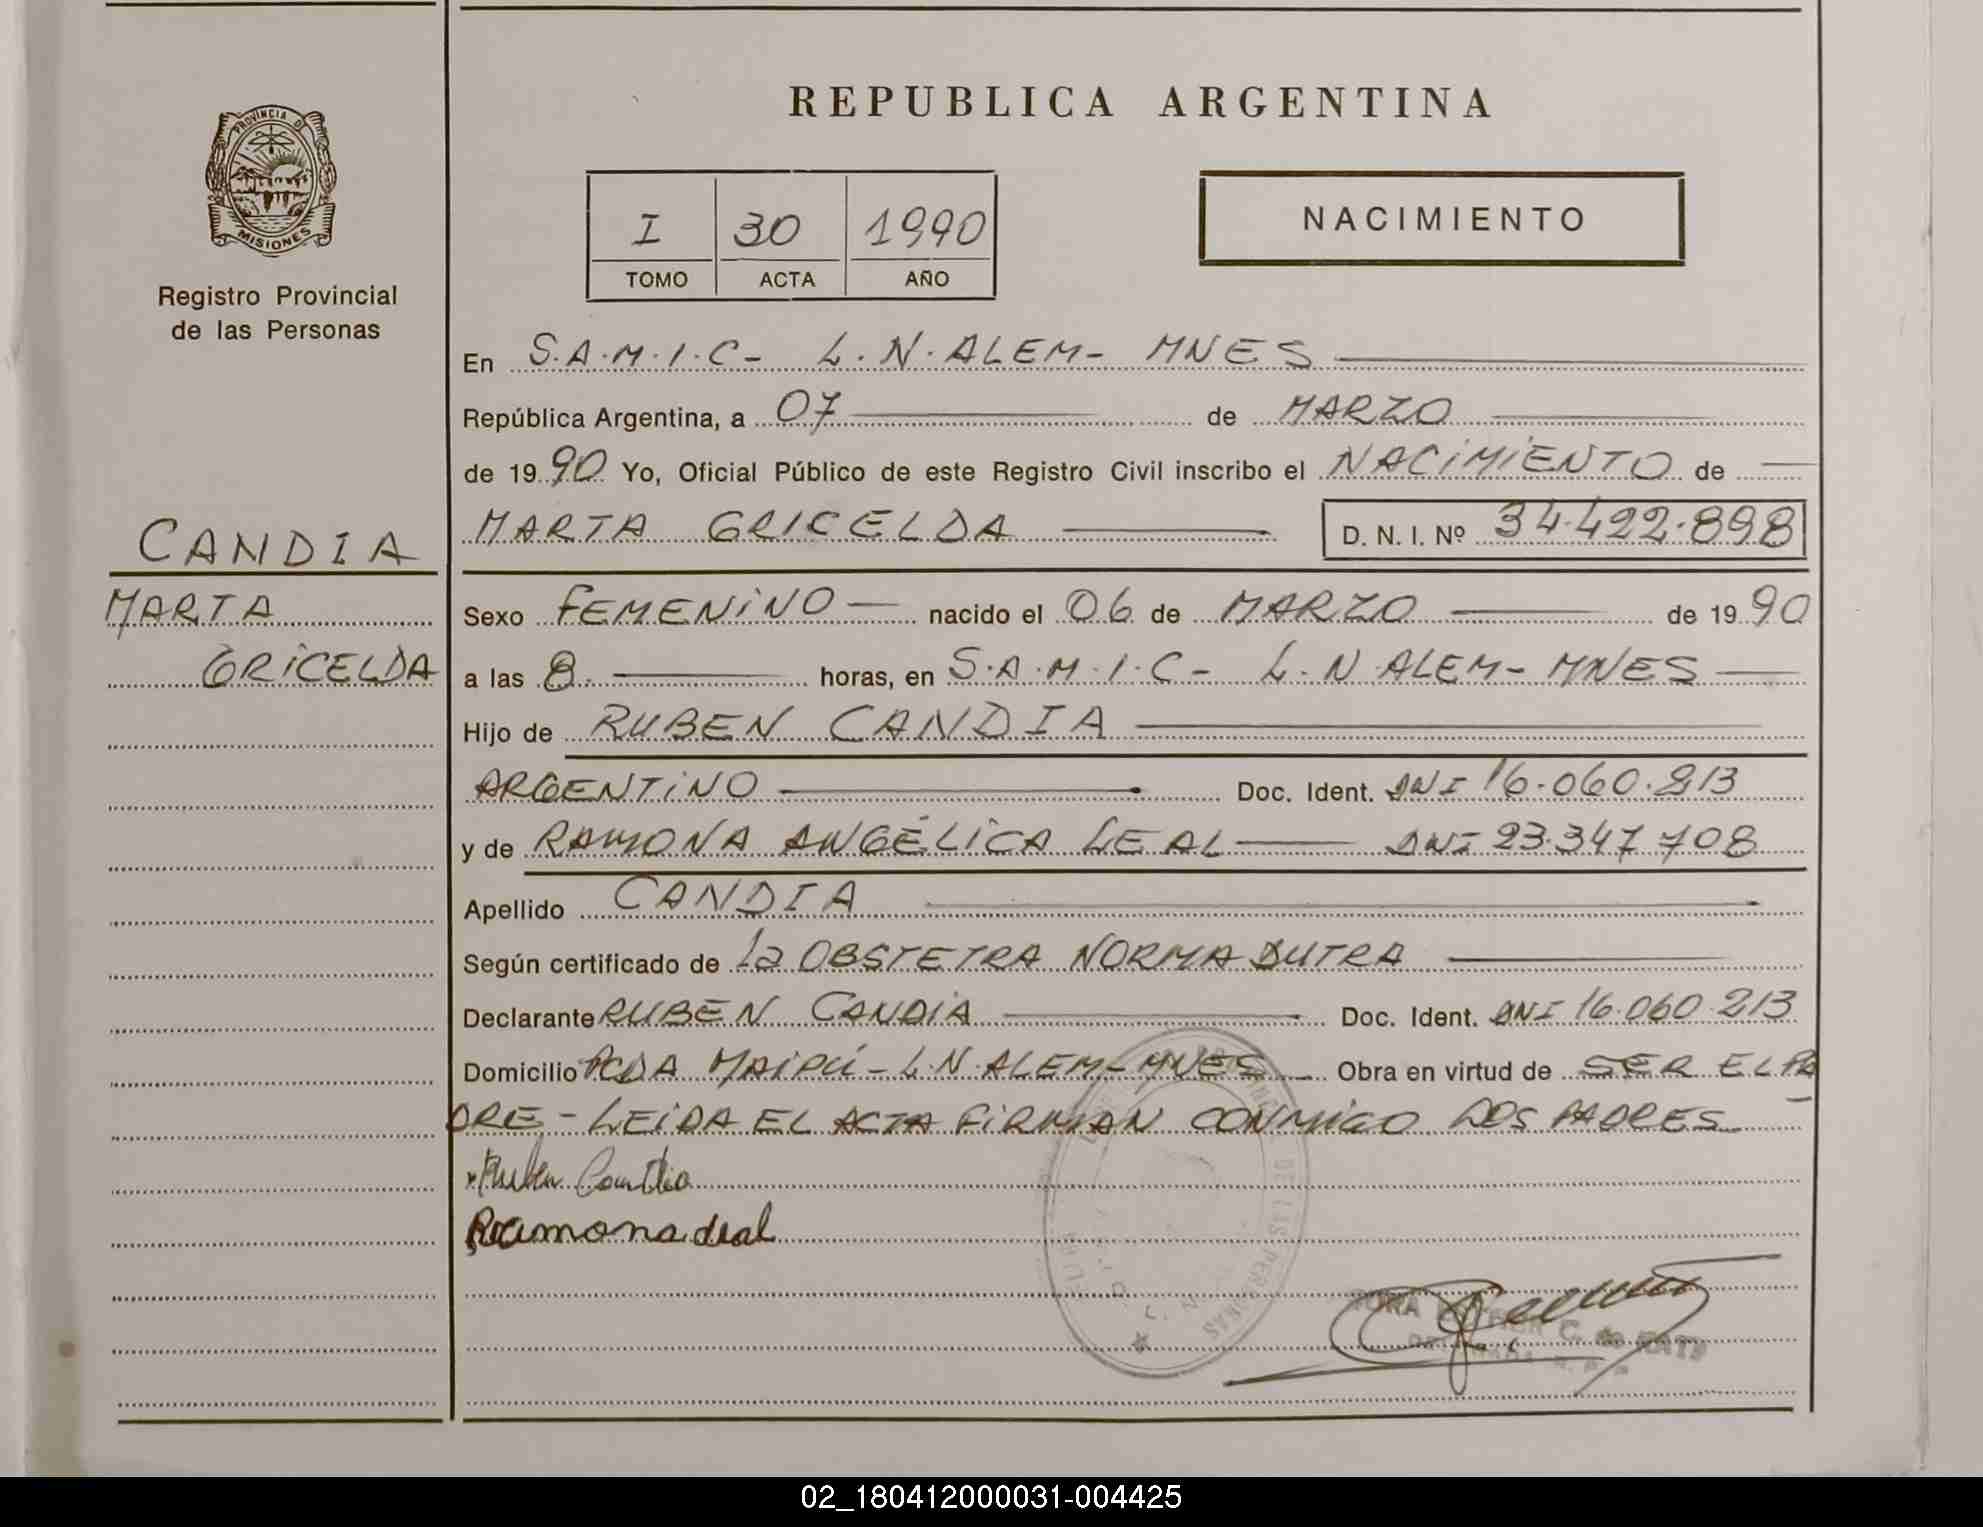 REPUBLICA ARGENTINA
PROVINCIA DE
MISIONES
Registro Provincial
de las Personas
I 30 1990
TOMO ACTA AÑO
NACIMIENTO
En S.A.M.I.C- L.N.ALEM- MNES
República Argentina, a 07 de MARZO
de 1990 Yo, Oficial Público de este Registro Civil inscribo el NACIMIENTO de
MARTA GRICELDA D. N. I. Nº 34.422.898
CANDIA
MARTA
GRICELDA
Sexo FEMENINO nacido el 06 de MARZO de 1990
a las 8. horas, en S.A.M.I.C- L.N.ALEM- MNES
Hijo de RUBEN CANDIA
ARGENTINO Doc. Ident. DNI 16.060.213
y de RAMONA ANGÉLICA LEAL DNI 23.347.708
Apellido CANDIA
Según certificado de la OBSTETRA NORMA DUTRA
Declarante RUBEN CANDIA Doc. Ident. DNI 16.060.213
Domicilio PCDA MAIPÚ - L.N.ALEM-MNES Obra en virtud de SER EL PA
DRE - LEIDA EL ACTA FIRMAN CONMIGO LOS PADRES
Ruben Candia
Ramona Leal
DE LAS PERSONAS
C. de
02_180412000031-004425